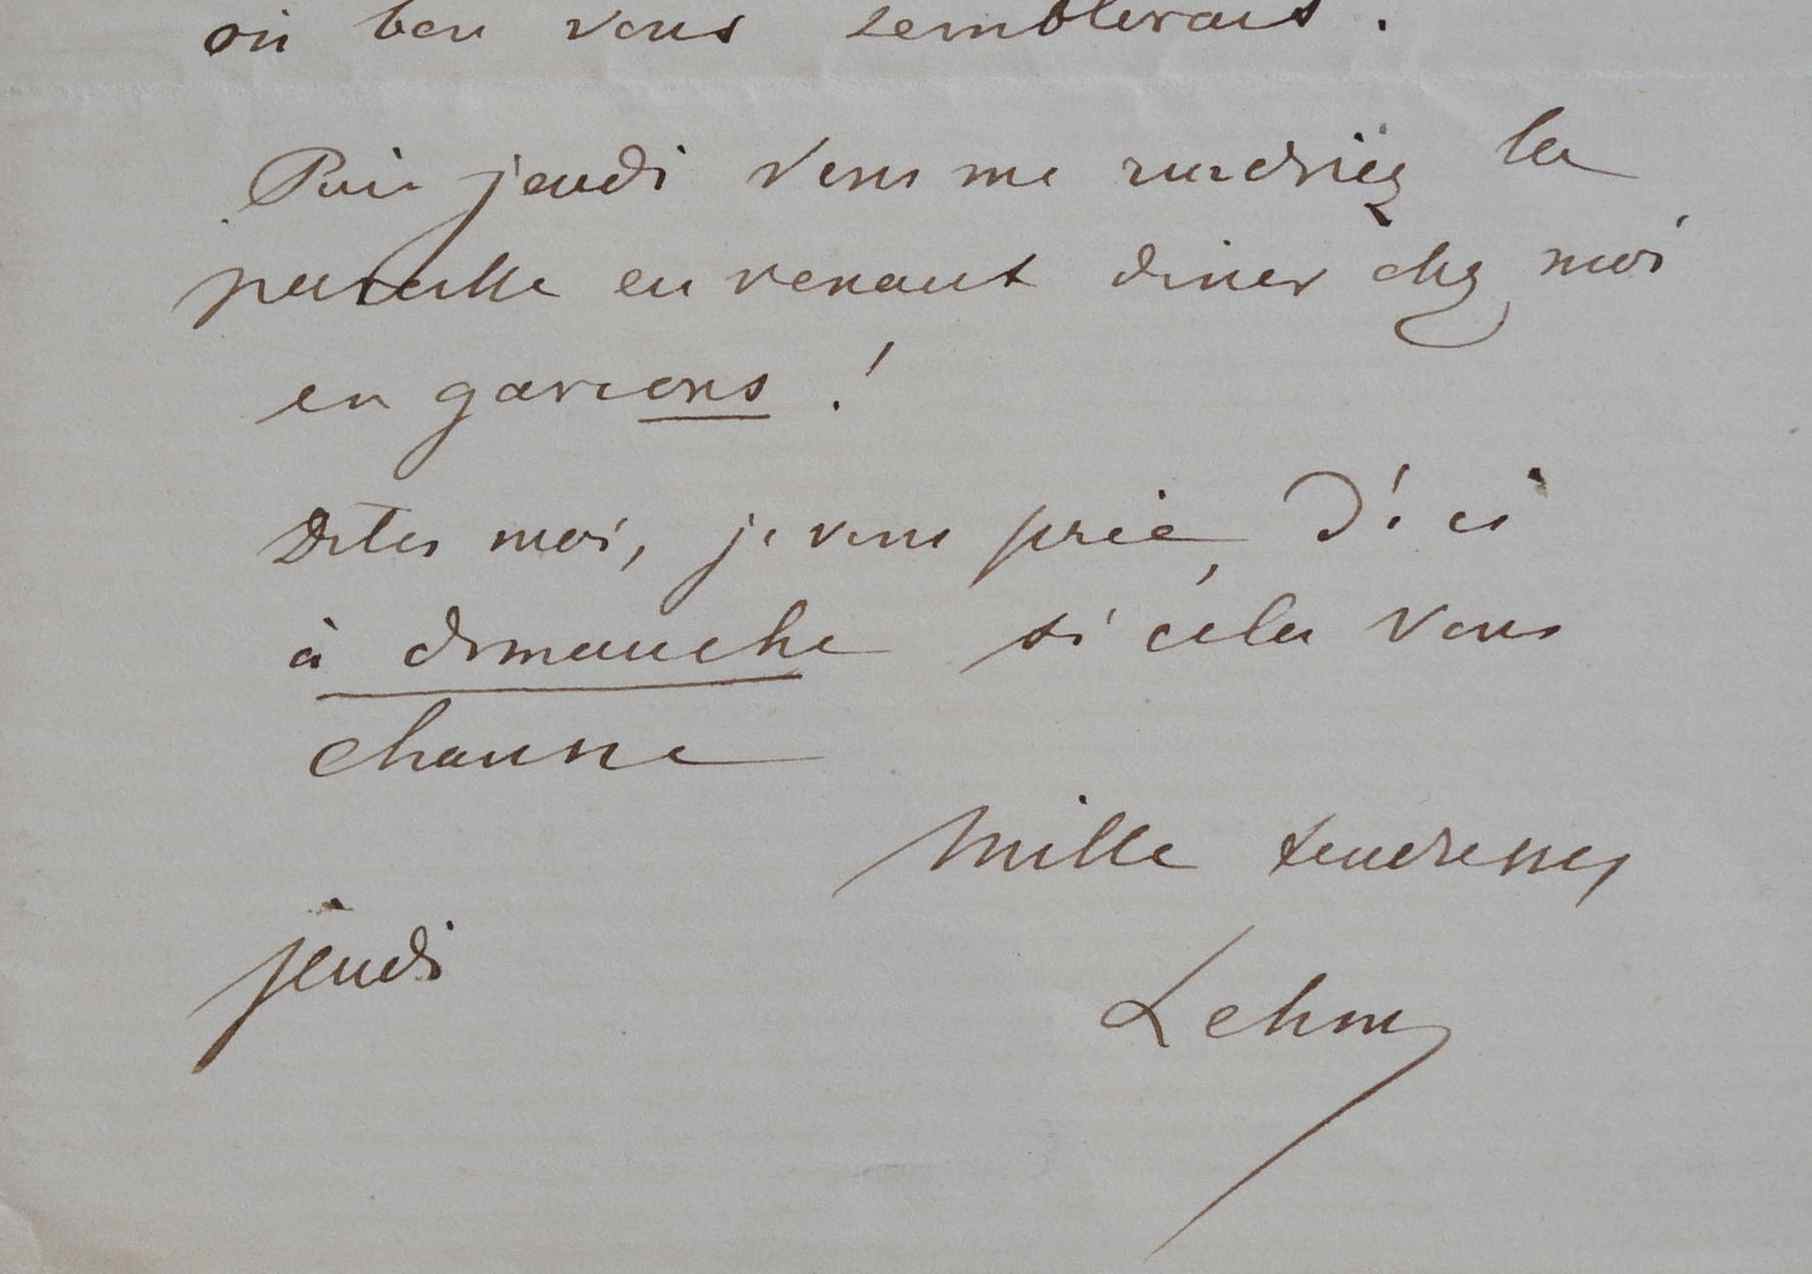 où bon vous semblerait.
Puis jeudi vous me rendriez la
pareille en venant diner chez moi
en garcons !
Dites moi, je vous prie, d'ici
à dimanche si cela vous
chausse
Mille tendresses
jeudi
Lehm